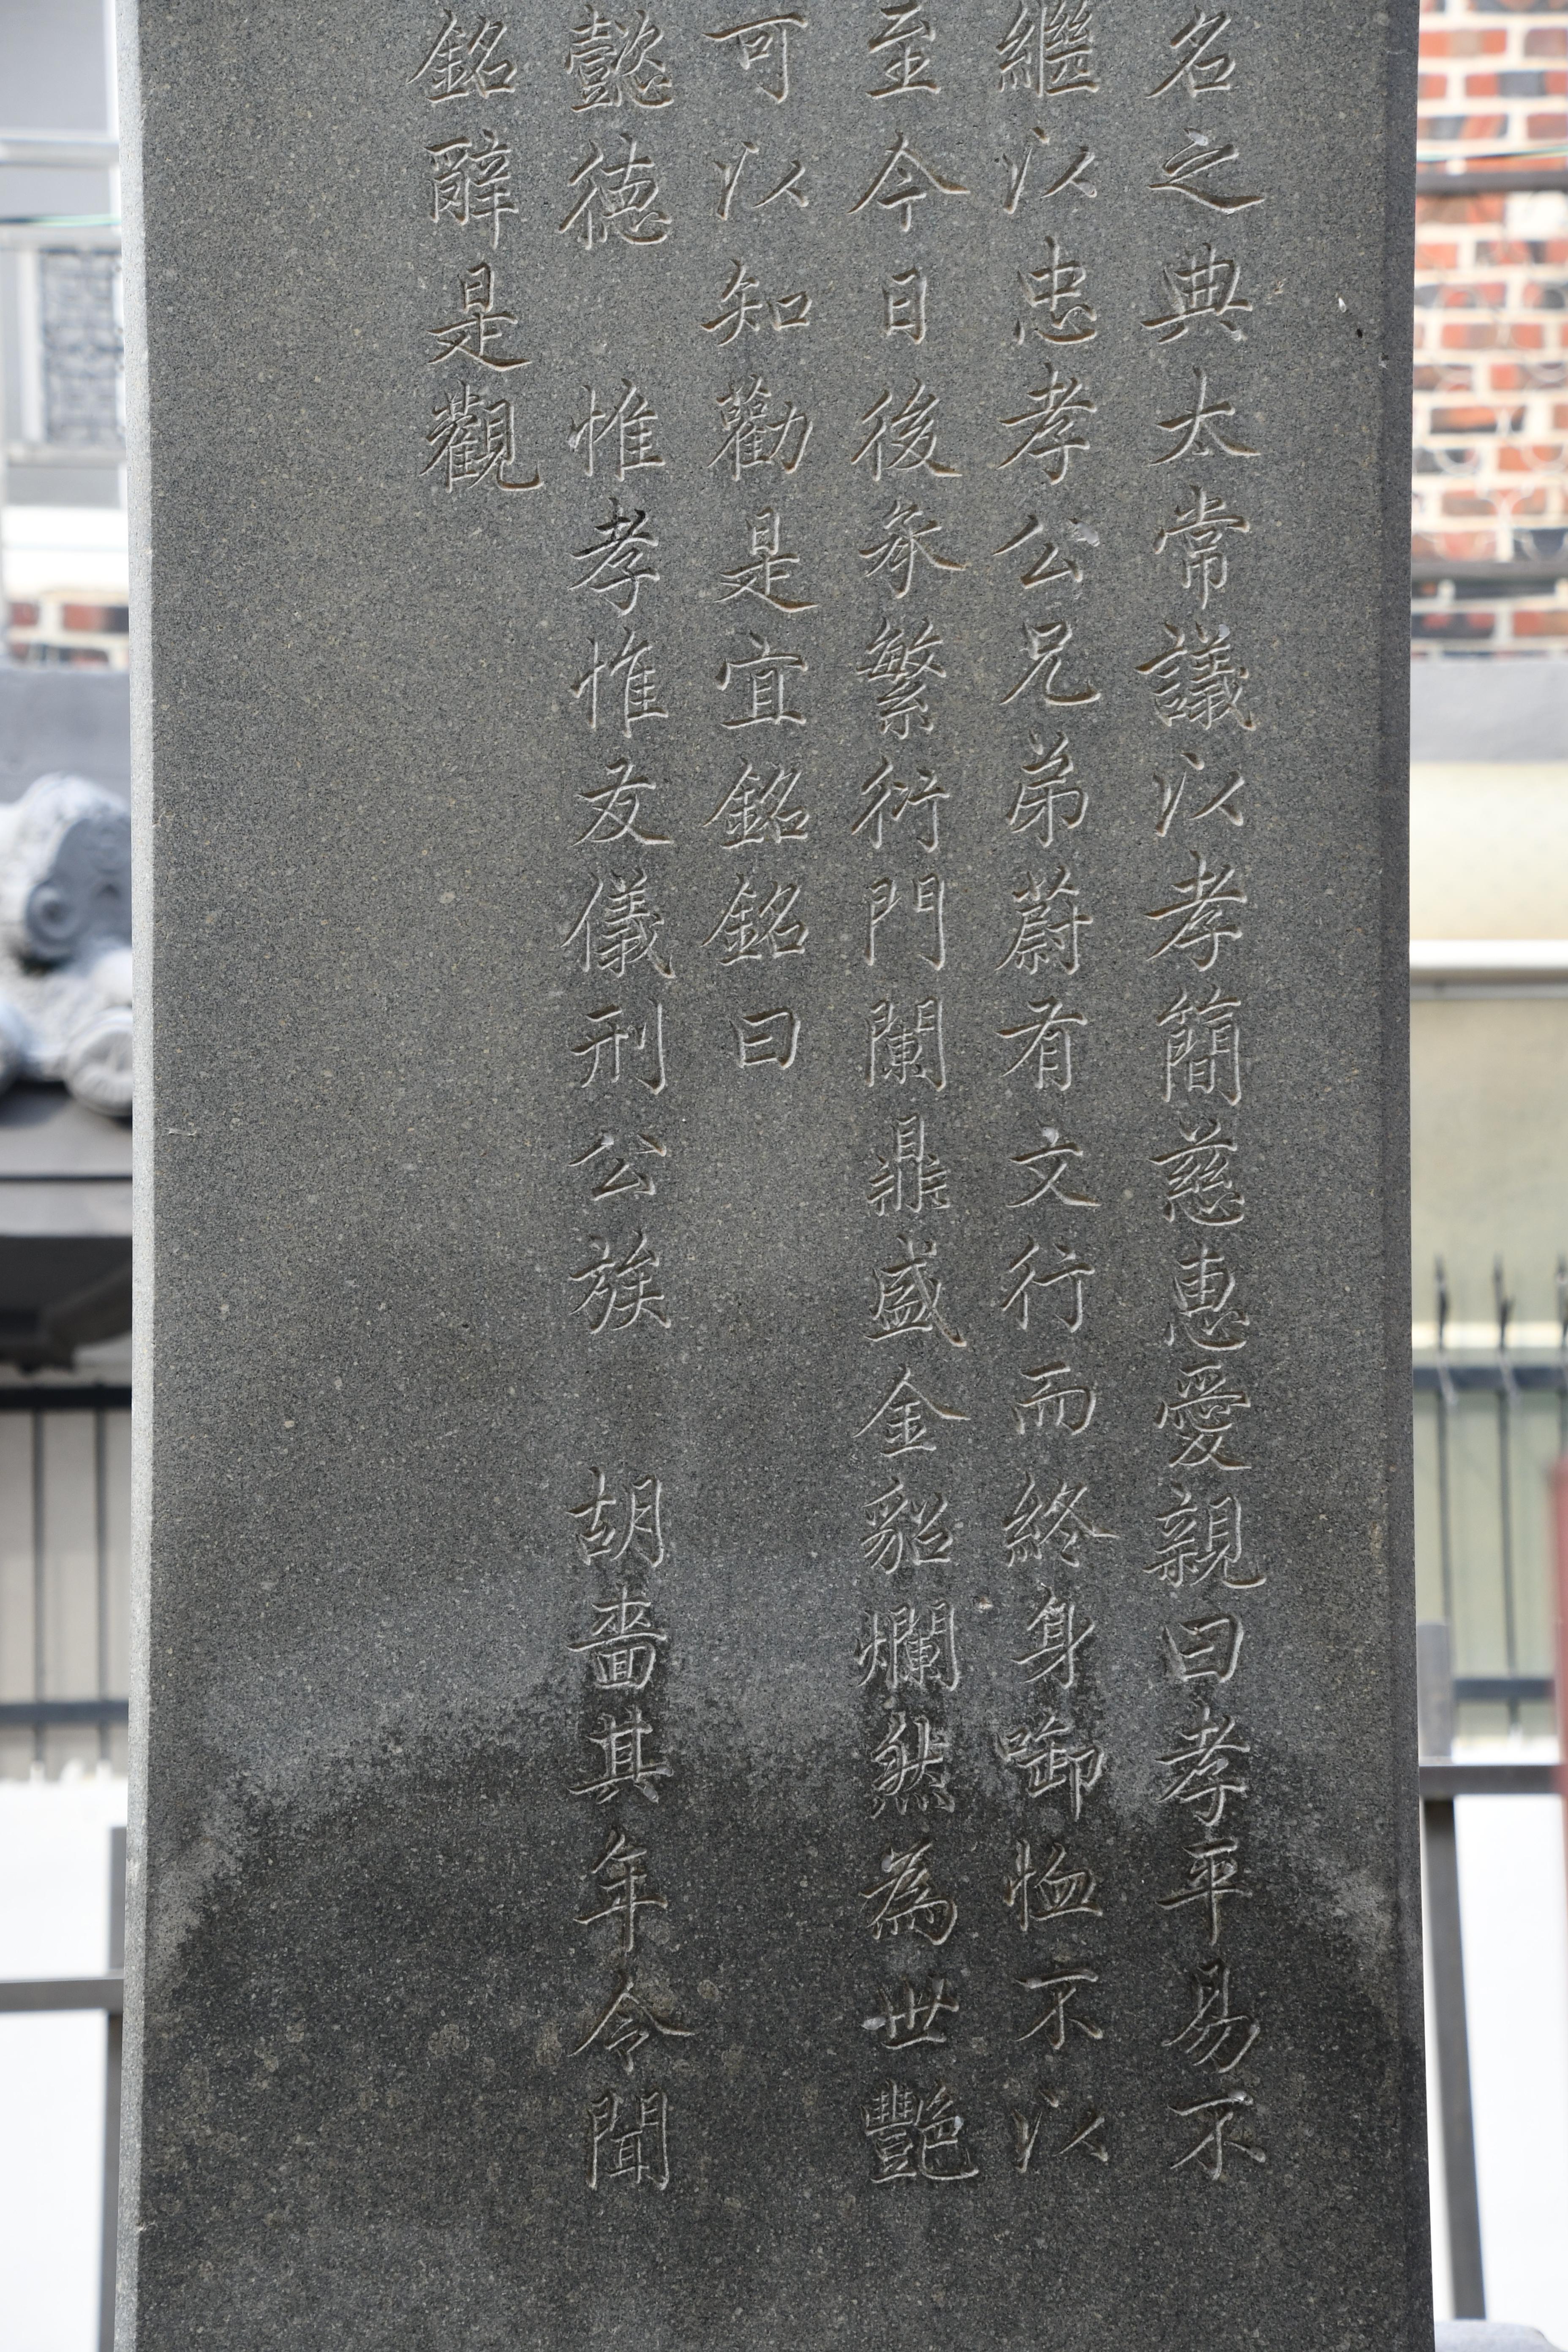 名之典太常議以孝簡慈惠愛親曰孝平易不
繼以忠孝公兄弟蔚有文行而終身啣恤不以
至今日後承繁衍門闌鼎盛金貂爛然為世艶
可以知勸是宜銘銘曰
懿德 惟孝惟友儀刑公族 胡嗇其年令聞
銘辭是觀